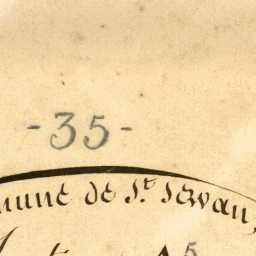 -35-
mune de St. Servan,
5